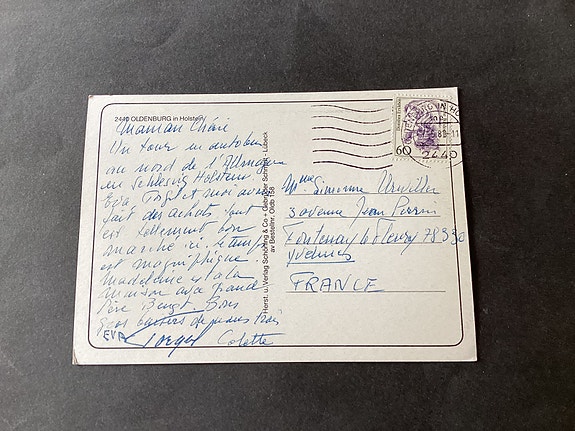 2440 OLDENBURG in Holstein
Maman Chérie
Un tour en autobus
au nord de l'Allmagne
en Schleswig Holstein
Eva et moi avons
fait des achats tout
est tellement bon
marché ici. Le temps
est magnifique
Madeleine est à la
maison avec grand
Père Bengt. Bons
gros baisers de nous trois
EVA Colette
Herst. u. Verlag Schöning & Co + Gebrüder Schmidt, Lübeck
Bestellnr. Oldb 158
60
2440
Mme Simonne
3 avenue Jean Perrin
Fontenay le Fleury 78330
Yvelines
FRANCE